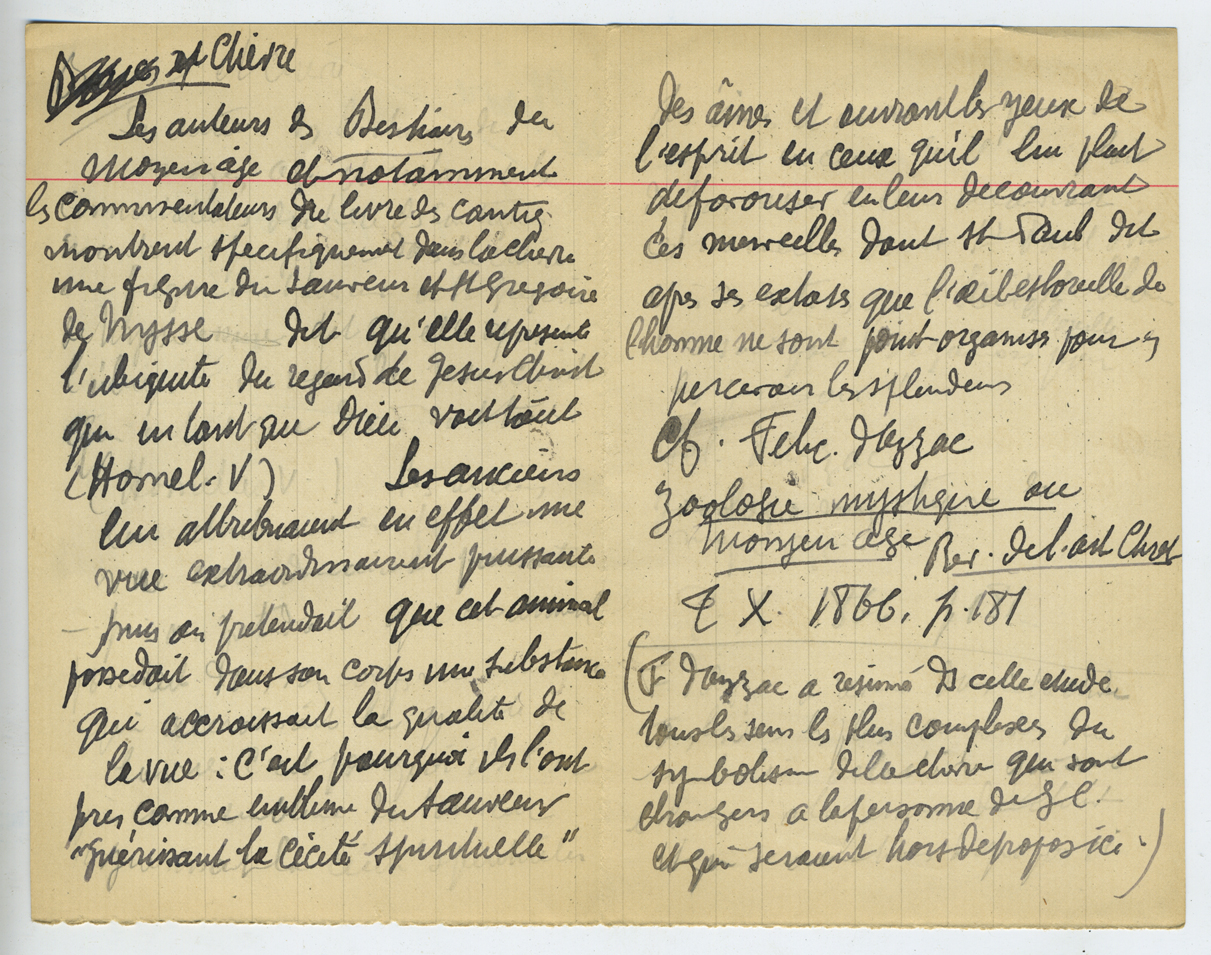 et Chèvre
Les auteurs des Bestiaires du
Moyen age et notamment
les commentateurs du livre des cantiq.
montrent specifiquement dans la chevre
une figure du Sauveur et St Gregoire
de Nysse dit qu'elle represente
l'ubiquité du regard de Jesus Christ
qui en tant que Dieu voit tout
(Homel. V) Les anciens
lui attribuaient en effet une
vue extraordinairement puissante
puis on pretendait que cet animal
possedait dans son corps une substance
qui accroissait la qualité de
la vue : c'est pourquoi ils l'ont
pris comme embleme du Sauveur
"guérissant la cécité spirituelle"
des âmes et ouvrant les yeux de
l'esprit en ceux qu'il lui plait
de favoriser en leur decouvrant
ces merveilles dont St Paul dit
apres ses extases que l'œil et l'oreille de
l'homme ne sont point organisés pour en
percevoir les splendeurs
Cf. Felix d'Ayzac
Zoologie mystique au
Moyen age Rev. de l'art Chret
T X. 1866. p. 181
(F d'Ayzac a resumé ds cette etude
tous les sens les plus complexes du
symbolisme de la chevre qui sont
etrangers a la personne de J C.
et qui seraient hors de propos ici.)